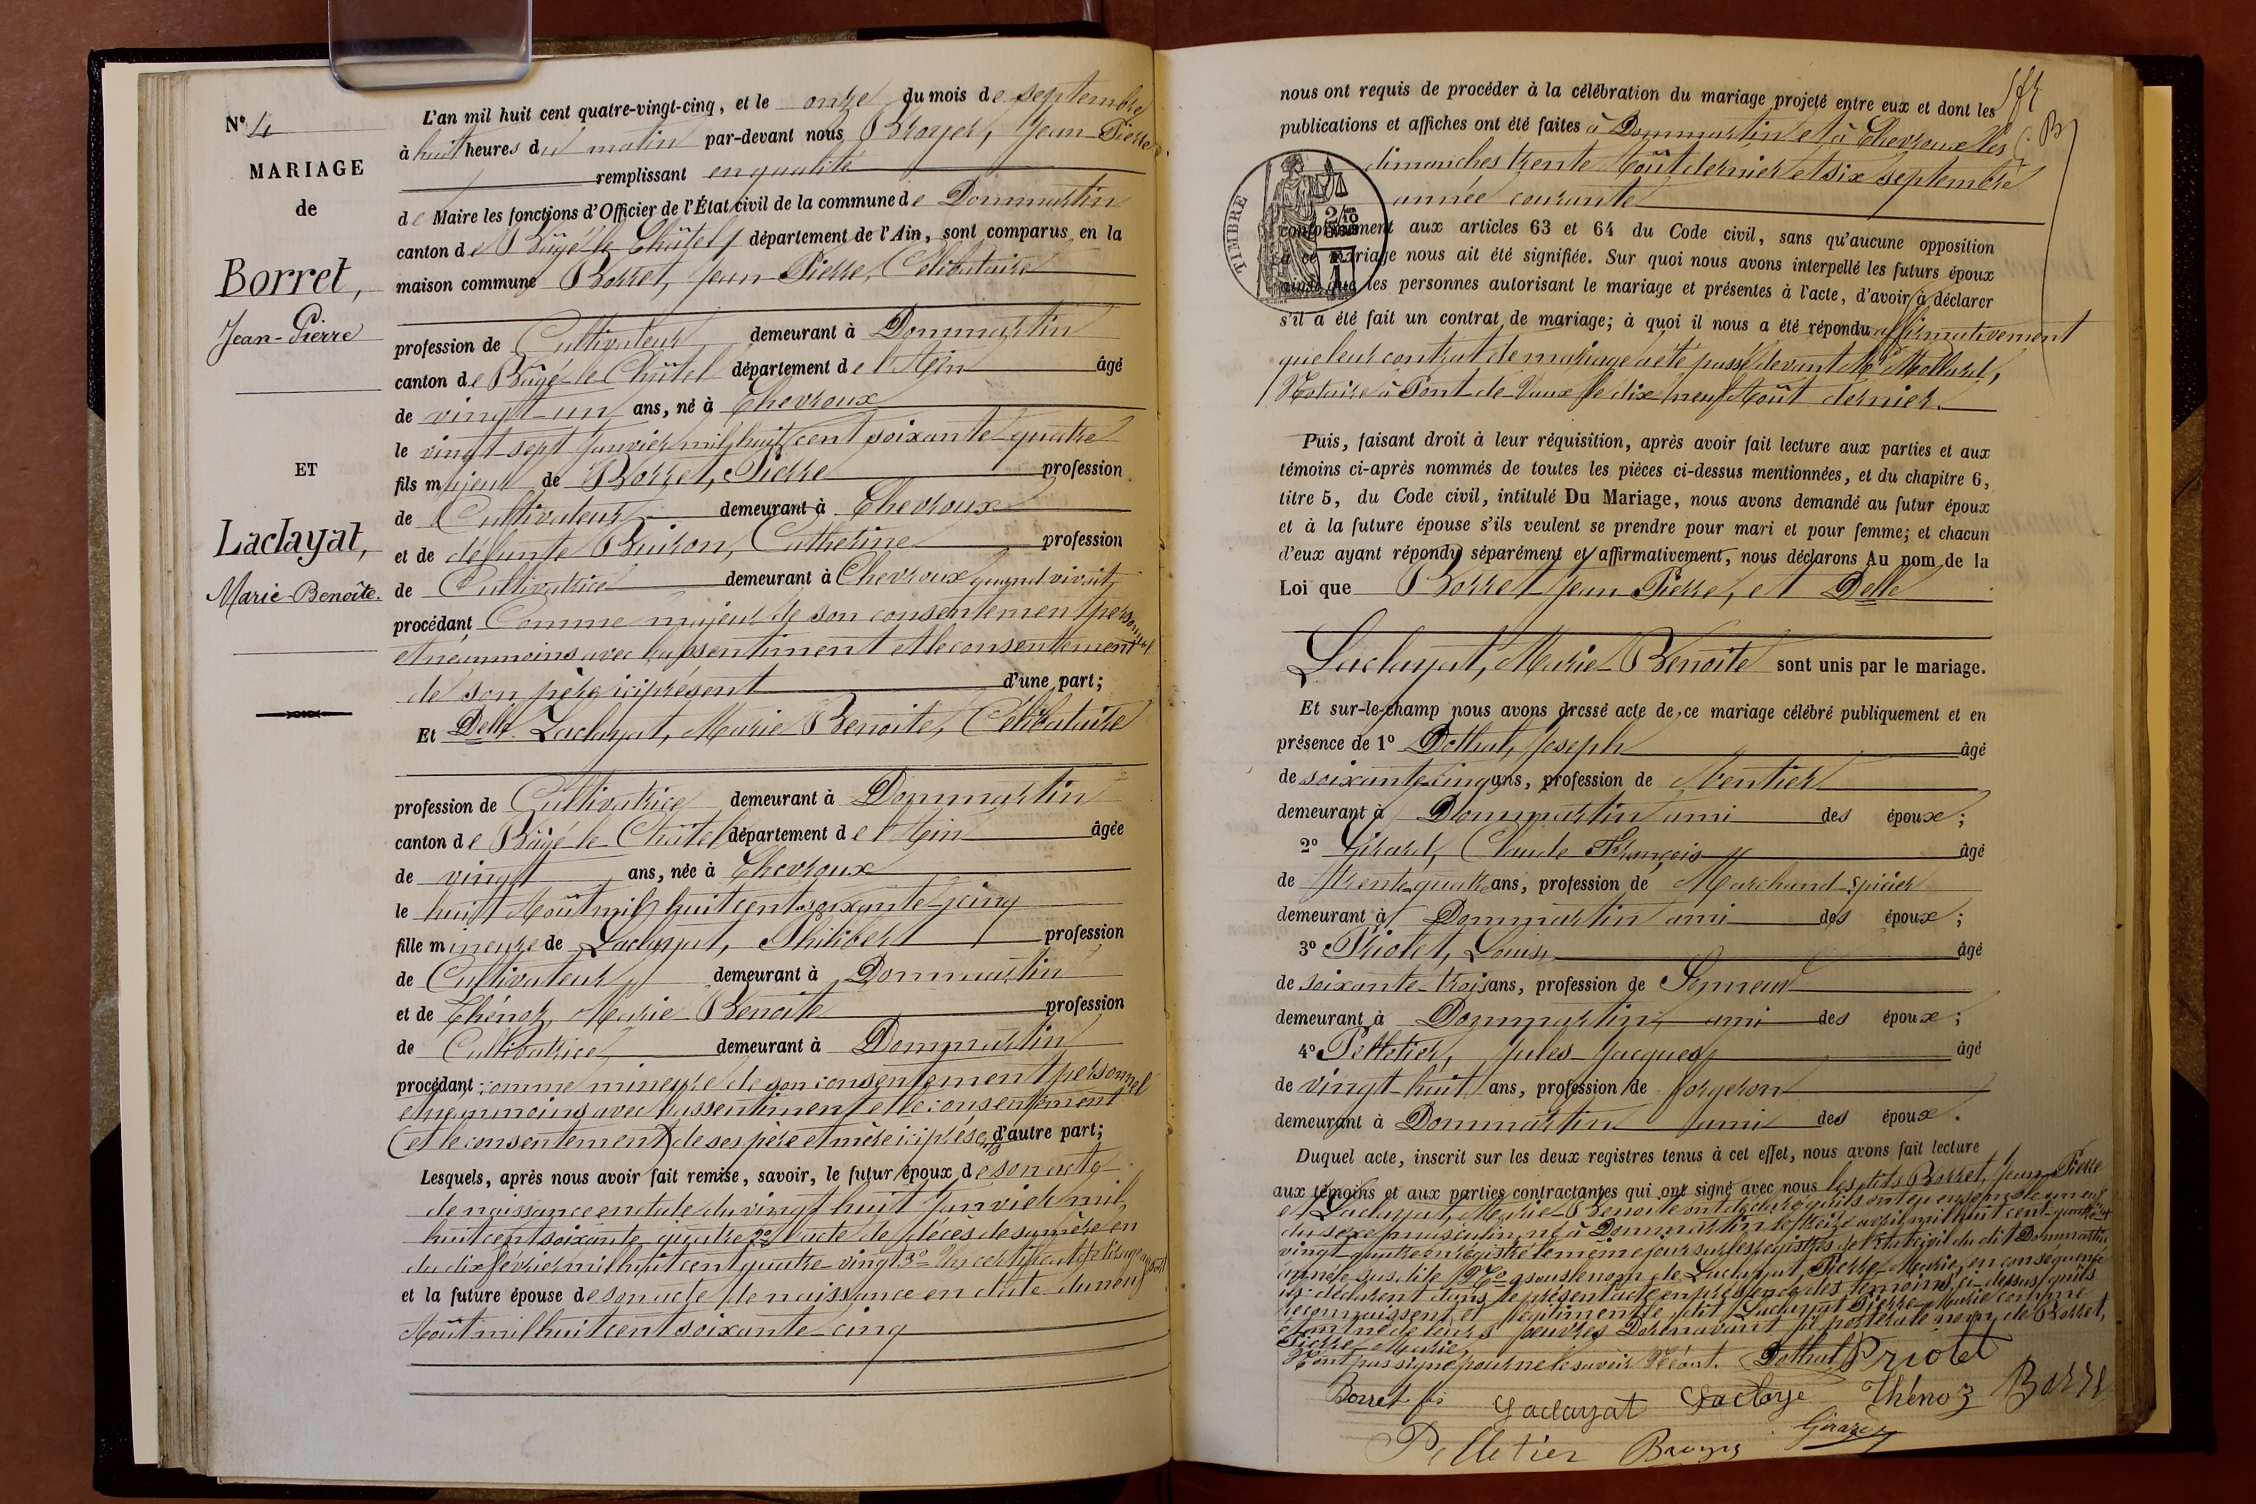 N° 4
MARIAGE
de
Borret,
Jean-Pierre
ET
Laclayat,
Marie-Benoîte.
L'an mil huit cent quatre-vingt-cinq, et le onze du mois de septembre
à huit heures du matin par-devant nous Broyer, Jean-Pierre
remplissant en qualité
de Maire les fonctions d'Officier de l'État civil de la commune de Dommartin
canton de Bâgé-le-Châtel, département de l'Ain, sont comparus en la
maison commune Borret, Jean-Pierre, Célibataire
profession de Cultivateur demeurant à Dommartin
canton de Bâgé-le-Châtel département de l'Ain âgé
de vingt-un ans, né à Chevroux
le vingt-sept Janvier mil huit cent soixante-quatre
fils majeur de Borret, Pierre profession
de Cultivateur demeurant à Chevroux
et de défunte Buiron, Catherine profession
de Cultivatrice demeurant à Chevroux quand vivait
procédant Comme majeur de son consentement personnel
et néanmoins avec l'assentiment et le consentement
de son père ici présent d'une part;
Et Delle Laclayat, Marie Benoite, Célibataire
profession de Cultivatrice demeurant à Dommartin
canton de Bâgé-le-Châtel département de l'Ain âgée
de vingt ans, née à Chevroux
le huit Août mil huit cent soixante-cinq
fille mineure de Laclayat, Philibert profession
de Cultivateur demeurant à Dommartin
et de Thénoz, Marie-Benoite profession
de Cultivatrice demeurant à Dommartin
procédant comme mineure de son consentement personnel
et néanmoins avec l'assentiment et le consentement
(et le consentement) de ses père et mère ici présents d'autre part;
Lesquels, après nous avoir fait remise, savoir, le futur époux de son acte
de naissance en date du vingt huit Janvier mil
huit cent soixante-quatre 2° l'acte de décès de sa mère en
du dix février mil huit cent quatre-vingt 3° Un certificat
et la future épouse de son acte de naissance en date du neuf
Août mil huit cent soixante-cinq
nous ont requis de procéder à la célébration du mariage projeté entre eux et dont les
publications et affiches ont été faites à Dommartin et à Chevroux les
dimanches trente Août dernier et six septembre
année courante
TIMBRE
conformément aux articles 63 et 64 du Code civil, sans qu'aucune opposition
à ce mariage nous ait été signifiée. Sur quoi nous avons interpellé les futurs époux
ainsi que les personnes autorisant le mariage et présentes à l'acte, d'avoir à déclarer
s'il a été fait un contrat de mariage; à quoi il nous a été répondu affirmativement
que leur contrat de mariage a été passé devant Me Mollard,
Notaire à Pont-de-Vaux le dix neuf Août dernier.
Puis, faisant droit à leur réquisition, après avoir fait lecture aux parties et aux
témoins ci-après nommés de toutes les pièces ci-dessus mentionnées, et du chapitre 6,
titre 5, du Code civil, intitulé Du Mariage, nous avons demandé au futur époux
et à la future épouse s'ils veulent se prendre pour mari et pour femme; et chacun
d'eux ayant répondu séparément et affirmativement, nous déclarons Au nom de la
Loi que Borret Jean Pierre, et Delle
Laclayat, Marie-Benoite sont unis par le mariage.
Et sur-le-champ nous avons dressé acte de ce mariage célébré publiquement et en
présence de 1° Dothal, Joseph âgé
de soixante-cinq ans, profession de Rentier
demeurant à Dommartin ami des époux;
2° Girard, Claude François âgé
de trente-quatre ans, profession de Marchand Epicier
demeurant à Dommartin ami des époux;
3° Priolet, Louis âgé
de soixante-trois ans, profession de Sonneur
demeurant à Dommartin ami des époux;
4° Pelletier, Jules-Jacques âgé
de vingt-huit ans, profession de forgeron
demeurant à Dommartin ami des époux.
Duquel acte, inscrit sur les deux registres tenus à cet effet, nous avons fait lecture
aux témoins et aux parties contractantes qui ont signé avec nous les dits Borret, Jean Pierre
et Laclayat, Marie-Benoite ont déclaré qu'ils ont eu ensemble un enfant
du sexe masculin, né à Dommartin le treize avril mil huit cent quatre
vingt quatre enregistré le même jour sur les registres de l'état civil du dit Dommartin
année susdite sous le nom de Laclayat, Pierre-Marie, en conséquence
ils déclarent dans le présent acte en présence des témoins ci-dessus qu'ils
reconnaissent et légitiment le dit Laclayat Pierre-Marie comme
étant né de leurs œuvres Dorénavant il portera le nom de Borret,
Pierre-Marie.
N'ont pas signé pour ne le savoir Dothal Priolet
Borret fs Laclayat Laclaye Thénoz Borre
Pelletier Broyer Girard